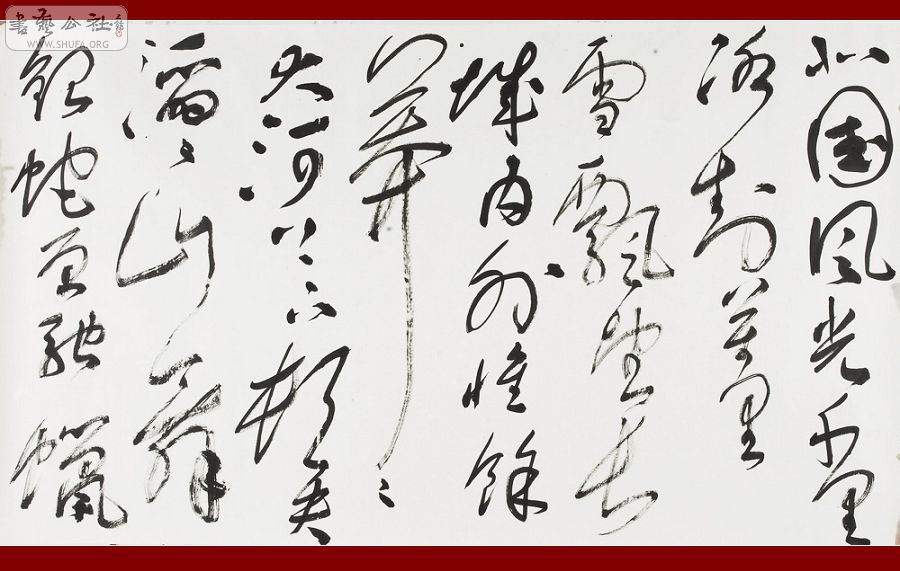 北國風光千里
冰封萬里
雪飄望長
城内外惟餘
莽〻
大河上下頓失
滔〻山舞
銀蛇原馳蠟
書藝公社
WWW.SHUFA.ORG